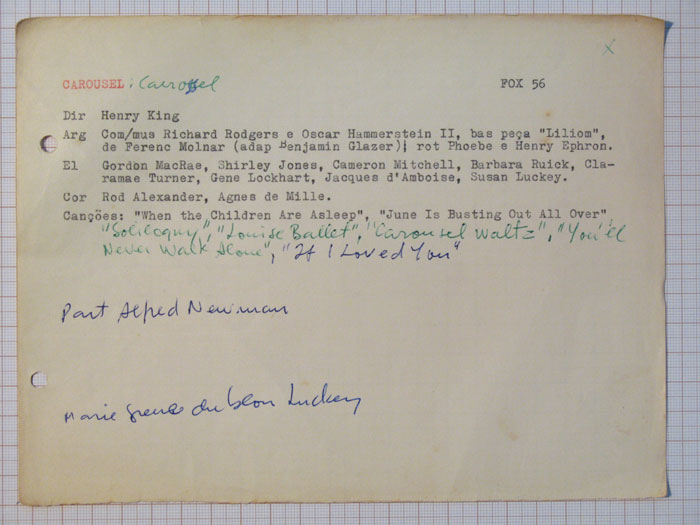 X
CAROUSEL : Carossel FOX 56
Dir Henry King
Arg Com/mus Richard Rodgers e Oscar Hammerstein II, bas peça "Liliom",
de Ferenc Molnar (adap Benjamin Glazer); rot Phoebe e Henry Ephron.
El Gordon MacRae, Shirley Jones, Cameron Mitchell, Barbara Ruick, Cla-
ramae Turner, Gene Lockhart, Jacques d'Amboise, Susan Luckey.
Cor Rod Alexander, Agnes de Mille.
Canções: "When the Children Are Asleep", "June Is Busting Out All Over"
"Soliloquy", "Louise Ballet", "Carousel Waltz", "You'll
Never Walk Alone", "If I Loved You"
Part Alfred Newman
Marie Luckey